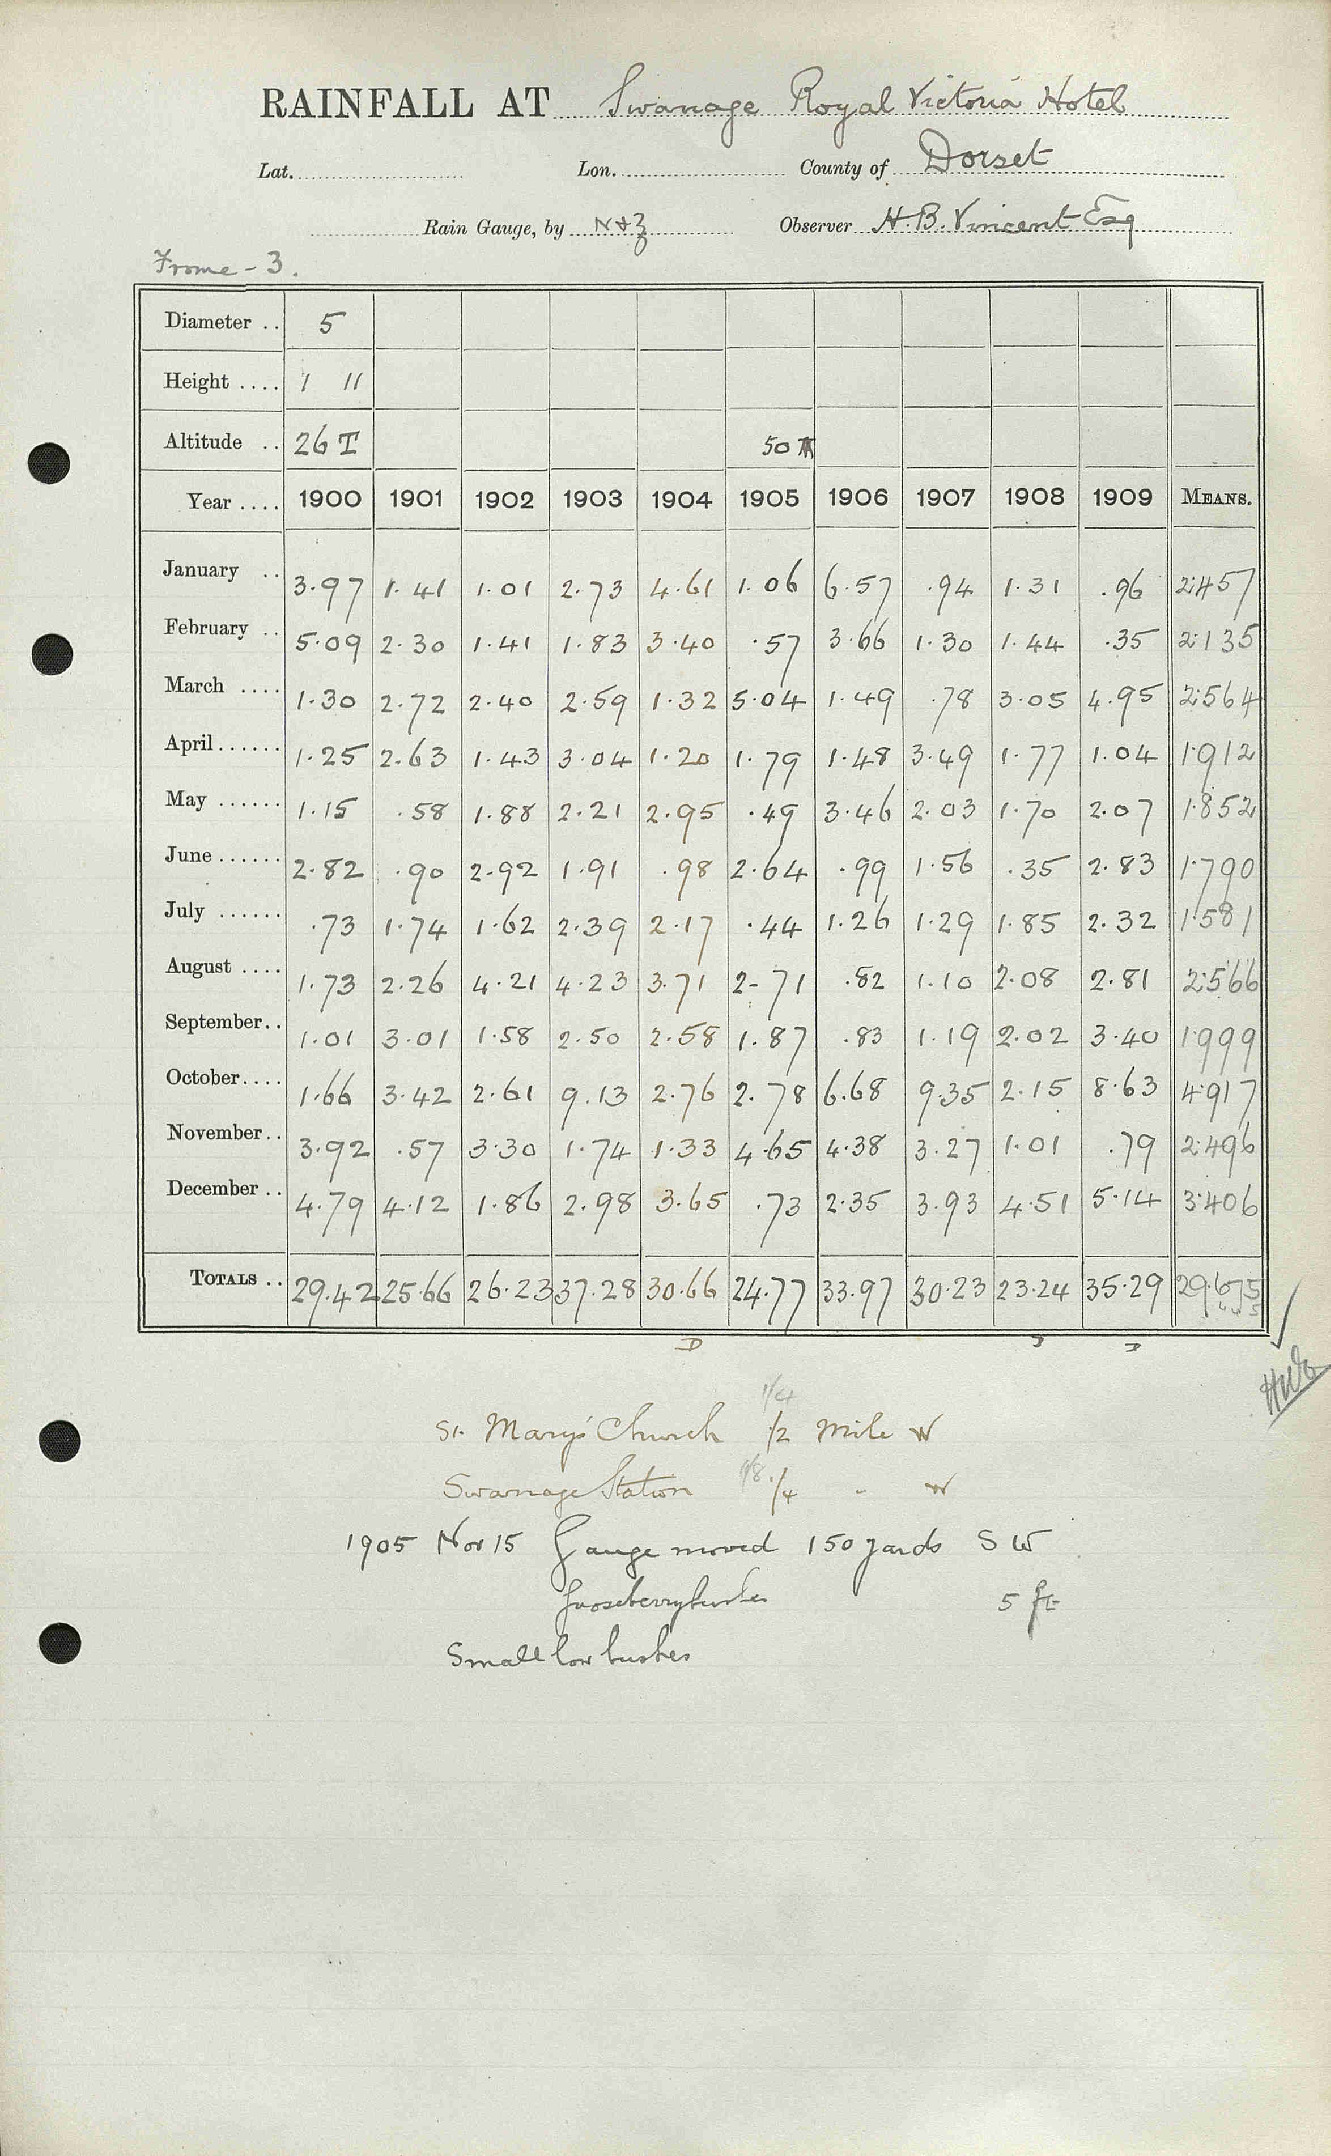 RAINFALL AT Swanage Royal Victoria Hotel
Lat. Lon. County of Dorset
Rain Gauge, by N & Z Observer H. B. Vincent Esq
Frome - 3.
Diameter .. 5
Height .... 1 11
Altitude .. 26 T 50
Year .... 1900 1901 1902 1903 1904 1905 1906 1907 1908 1909 MEANS.
January .. 3.97 1.41 1.01 2.73 4.61 1.06 6.57 .94 1.31 .96 2.457
February .. 5.09 2.30 1.41 1.83 3.40 .57 3.66 1.30 1.44 .35 2.135
March .... 1.30 2.72 2.40 2.59 1.32 5.04 1.49 .78 3.05 4.95 2.564
April...... 1.25 2.63 1.43 3.04 1.20 1.79 1.48 3.49 1.77 1.04 1.912
May ...... 1.15 .58 1.88 2.21 2.95 .49 3.46 2.03 1.70 2.07 1.852
June ...... 2.82 .90 2.92 1.91 .98 2.64 .99 1.56 .35 2.83 1.790
July ...... .73 1.74 1.62 2.39 2.17 .44 1.26 1.29 1.85 2.32 1.581
August .... 1.73 2.26 4.21 4.23 3.71 2-71 .82 1.10 2.08 2.81 2.566
September.. 1.01 3.01 1.58 2.50 2.58 1.87 .83 1.19 2.02 3.40 1.999
October.... 1.66 3.42 2.61 9.13 2.76 2.78 6.68 9.35 2.15 8.63 4.917
November.. 3.92 .57 3.30 1.74 1.33 4.65 4.38 3.27 1.01 .79 2.496
December .. 4.79 4.12 1.86 2.98 3.65 .73 2.35 3.93 4.51 5.14 3.406
TOTALS .. 29.42 25.66 26.23 37.28 30.66 24.77 33.97 30.23 23.24 35.29 29.675
D
1/4
St. Mary's Church 1/2 Mile W
Swanage Station 1/8 1/4 " W
1905 Nov 15 Gauge moved 150 yards S W
Gooseberry bushes 5 ft
Small low bushes